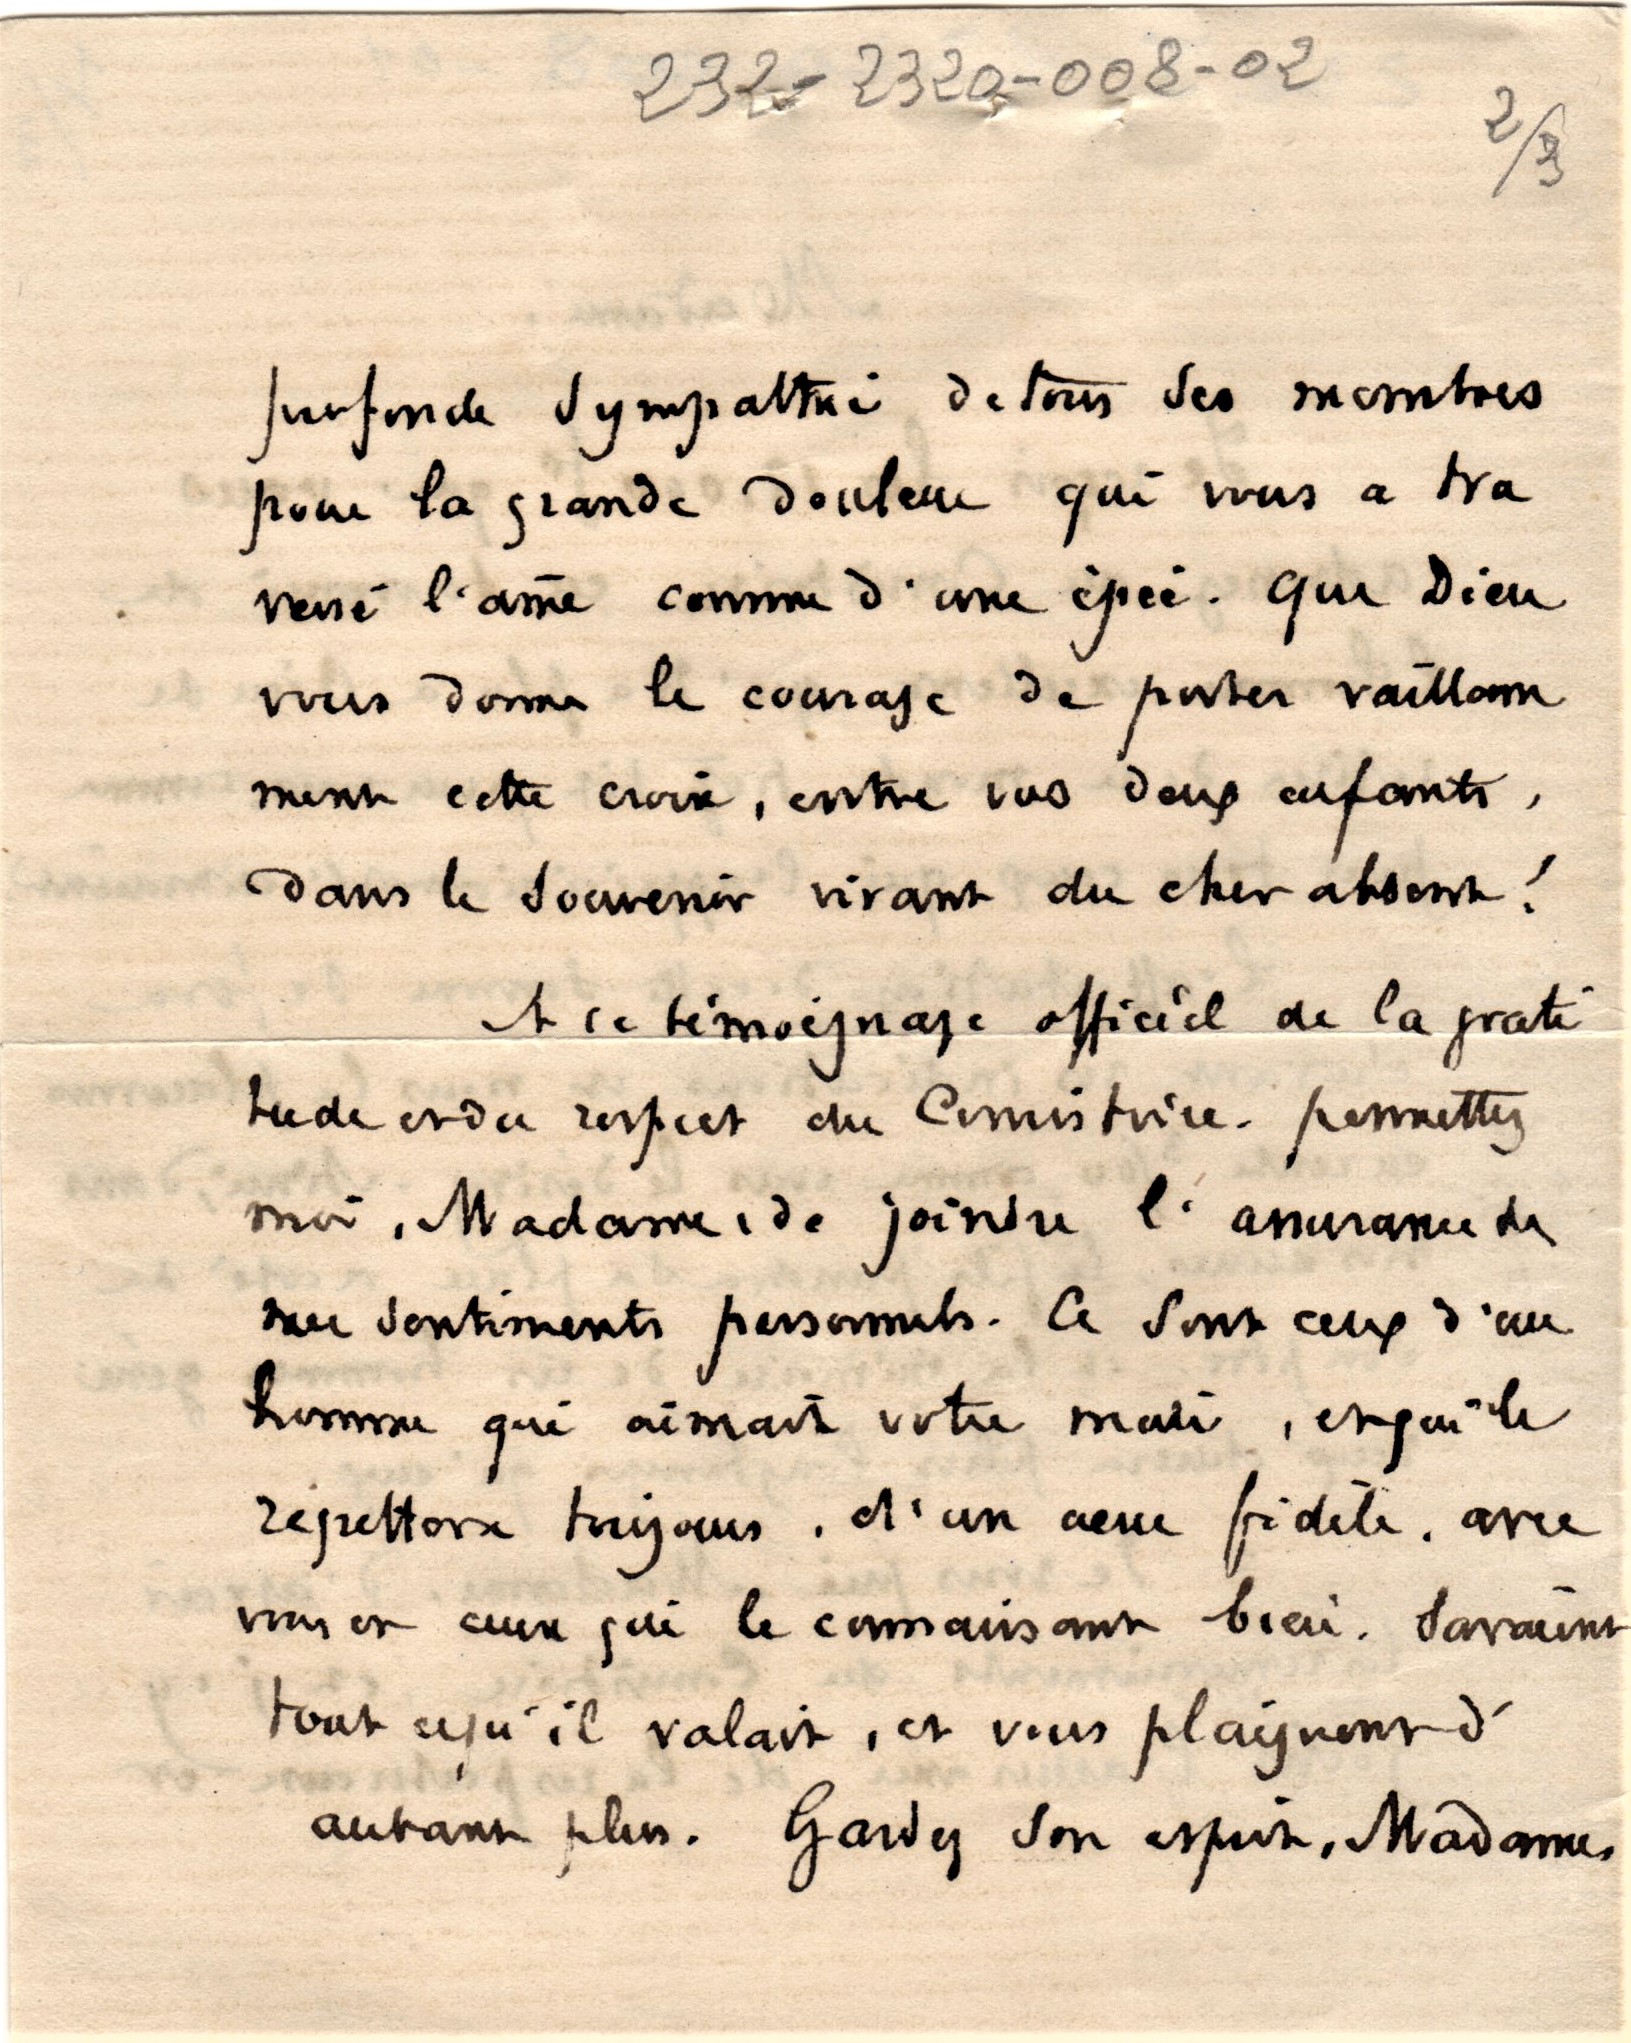 232-2320-008-02
2/3
profonde sympathie de tous ses membres
pour la grande douleur qui vous a tra
versé l'âme comme d'une épée. Que Dieu
vous donne le courage de porter vaillam
ment cette croix, entre vos deux enfants,
dans le souvenir vivant du cher absent!
A ce témoignage officiel de la grati
tude et du respect du Consistoire. permettez
moi, Madame, de joindre l'assurance de
mes sentiments personnels. Ce sont ceux d'un
homme qui aimait votre mari, et qui le
regrettera toujours, d'un cœur fidèle. avec
vous et ceux qui le connaissant bien. savaient
tout ce qu'il valait, et vous plaignent d'
autant plus. Gardez son esprit, Madame,